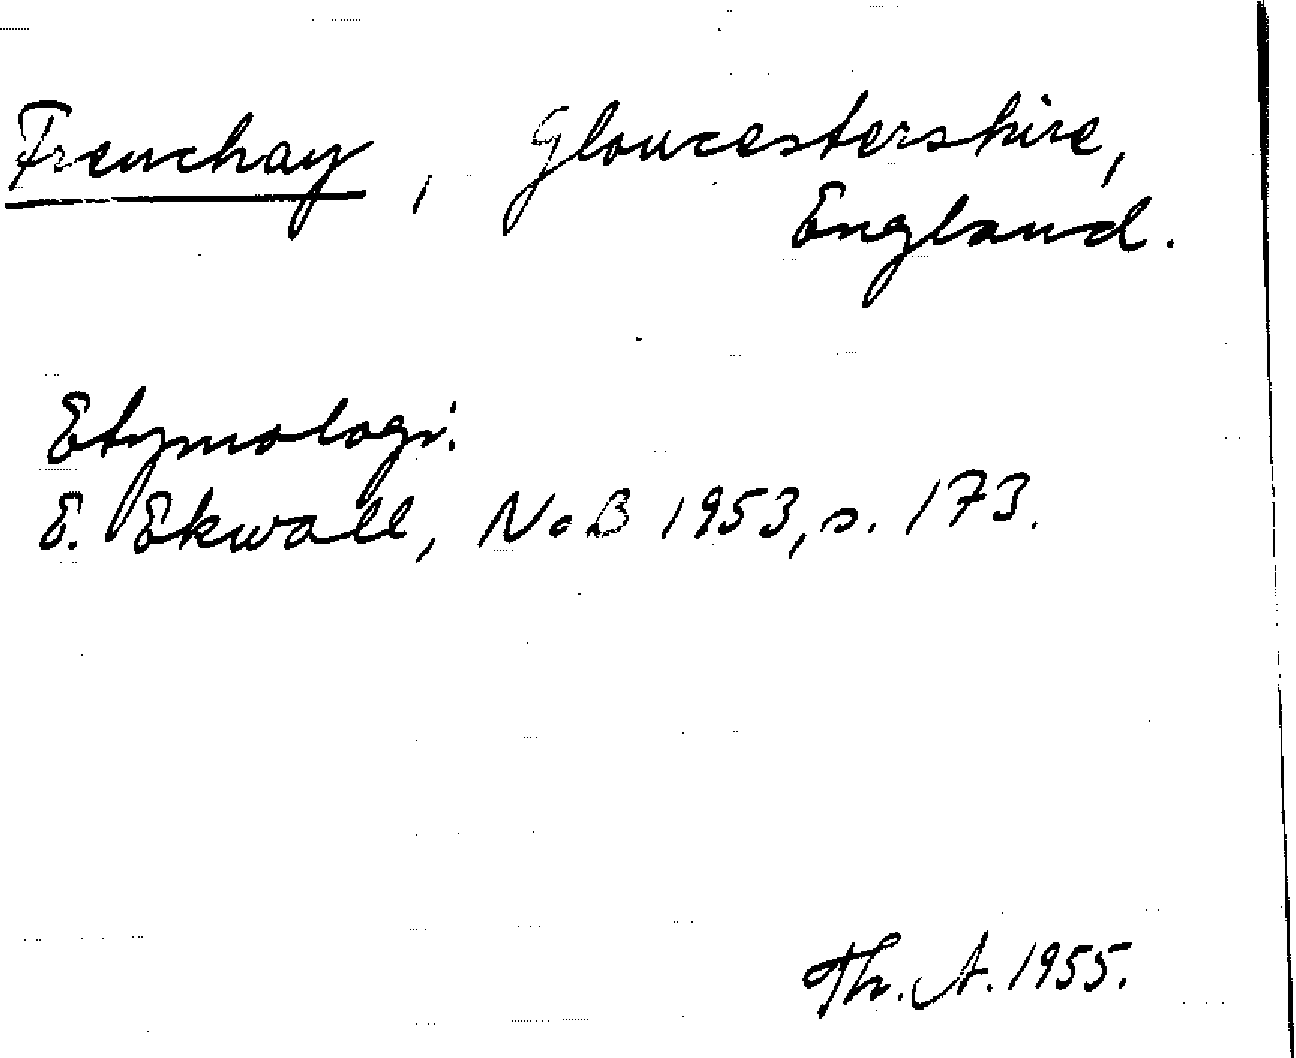 Frenchay, Gloucestershire,
England.
Etymologi:
E. Ekwall, NoB 1953, s. 173.
Th. A. 1955.